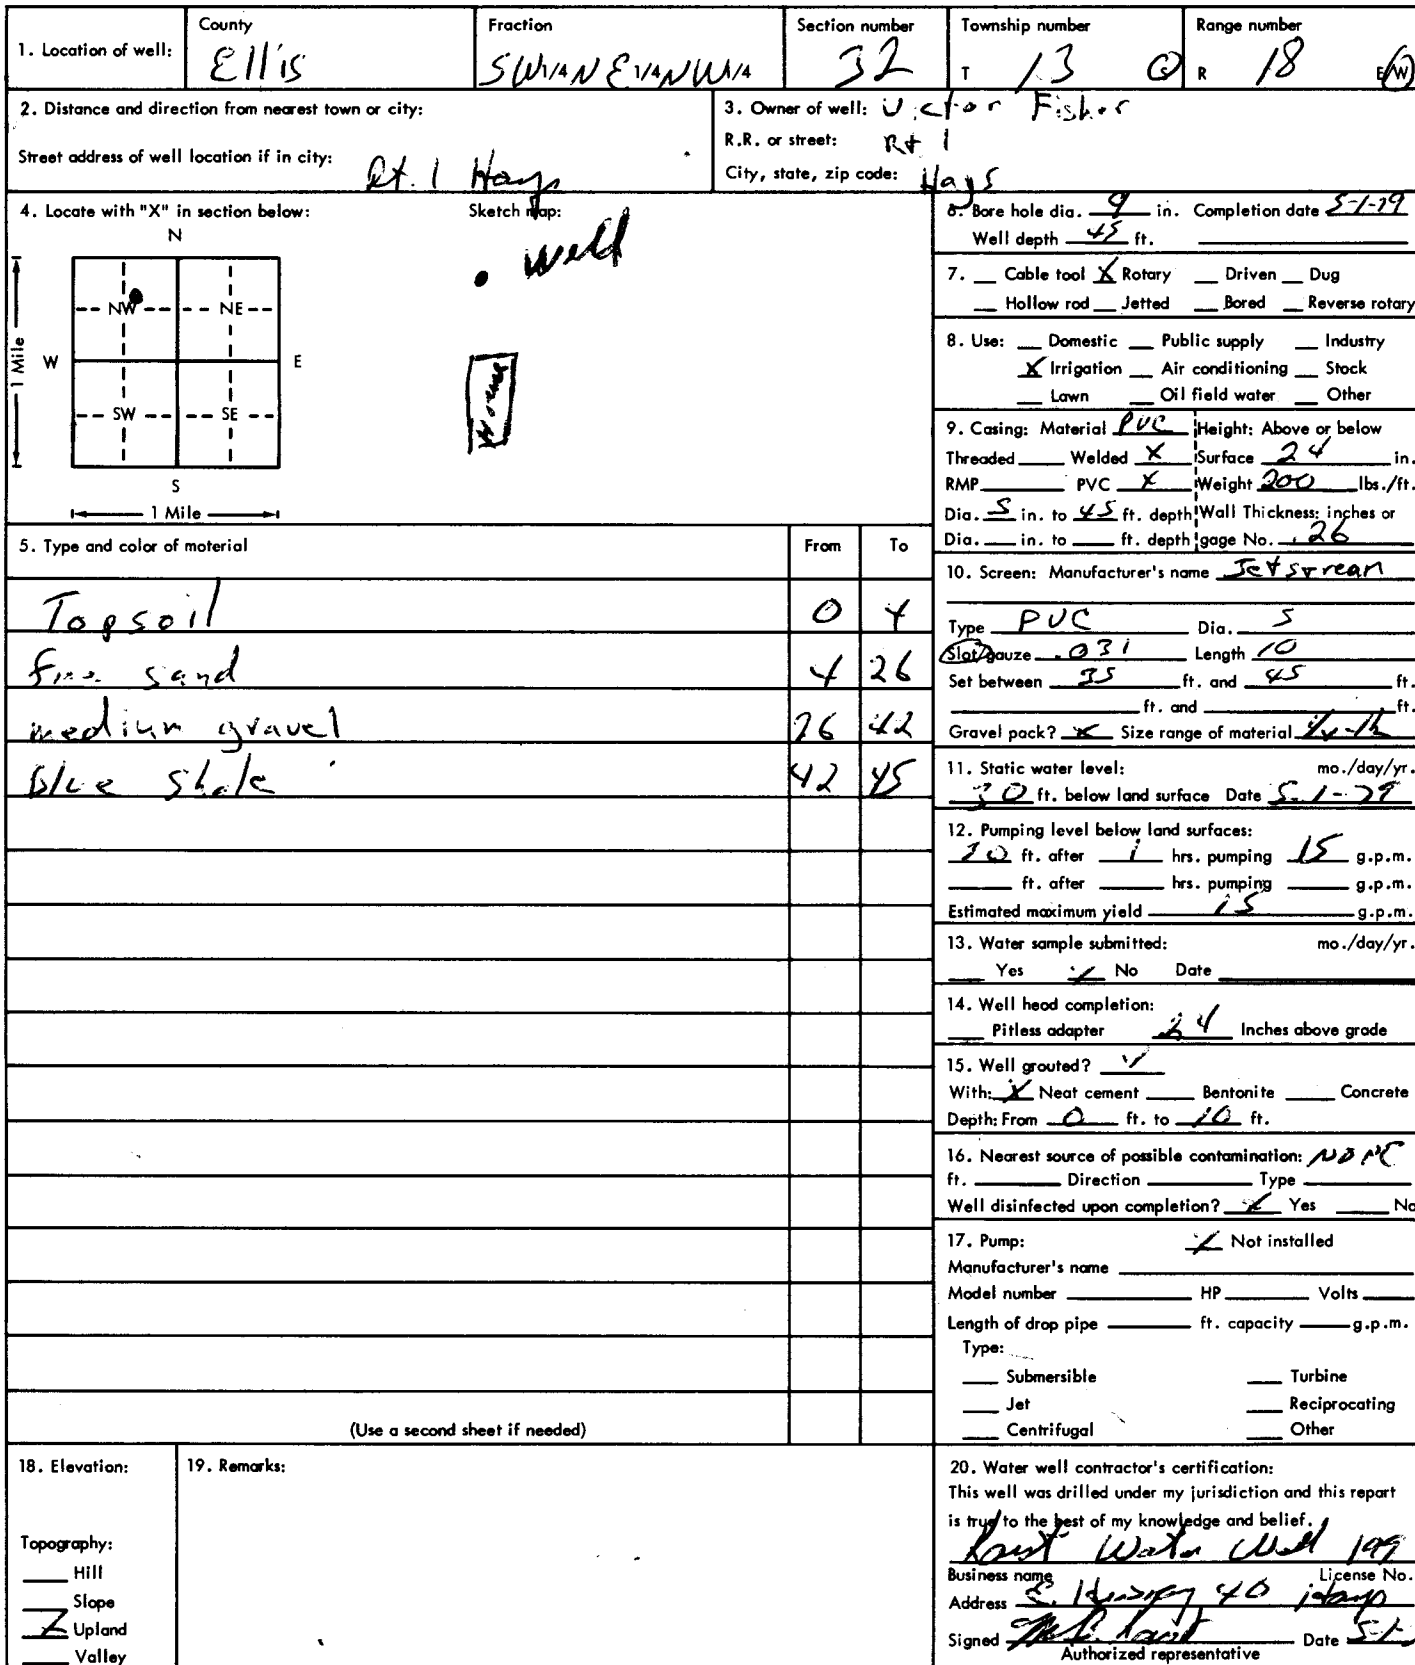 1. Location of well:
County
Ellis
Fraction
SW1/4NE1/4NW1/4
Section number
32
Township number
T 13 S
Range number
R 18 E/W
2. Distance and direction from nearest town or city:
Street address of well location if in city: Rt. 1 Hays
3. Owner of well: Victor Fisher
R.R. or street: Rt 1
City, state, zip code: Hays
4. Locate with "X" in section below:
Sketch map:
N
NW NE
W E
SW SE
S
1 Mile
1 Mile
well
House
5. Type and color of material From To
Topsoil 0 4
fine sand 4 26
medium gravel 26 42
Blue Shale 42 45
(Use a second sheet if needed)
6. Bore hole dia. 9 in. Completion date 5-1-79
Well depth 45 ft.
7. Cable tool X Rotary Driven Dug
Hollow rod Jetted Bored Reverse rotary
8. Use: Domestic Public supply Industry
X Irrigation Air conditioning Stock
Lawn Oil field water Other
9. Casing: Material PVC Height: Above or below
Threaded Welded X Surface 24 in.
RMP PVC X Weight 200 lbs./ft.
Dia. 5 in. to 45 ft. depth Wall Thickness: inches or
Dia. in. to ft. depth gage No. .26
10. Screen: Manufacturer's name Jetstream
Type PVC Dia. 5
Slot/gauze .031 Length 10
Set between 35 ft. and 45 ft.
ft. and ft.
Gravel pack? X Size range of material
11. Static water level: mo./day/yr.
30 ft. below land surface Date 5-1-79
12. Pumping level below land surfaces:
30 ft. after 1 hrs. pumping 15 g.p.m.
ft. after hrs. pumping g.p.m.
Estimated maximum yield 15 g.p.m.
13. Water sample submitted: mo./day/yr.
Yes X No Date
14. Well head completion:
Pitless adapter 24 Inches above grade
15. Well grouted? ✓
With: X Neat cement Bentonite Concrete
Depth: From 0 ft. to 10 ft.
16. Nearest source of possible contamination: NONE
ft. Direction Type
Well disinfected upon completion? X Yes No
17. Pump: X Not installed
Manufacturer's name
Model number HP Volts
Length of drop pipe ft. capacity g.p.m.
Type:
Submersible Turbine
Jet Reciprocating
Centrifugal Other
18. Elevation:
Topography:
Hill
Slope
X Upland
Valley
19. Remarks:
20. Water well contractor's certification:
This well was drilled under my jurisdiction and this report
is true to the best of my knowledge and belief.
Water Well 199
Business name License No.
Address E. Highway 40 Hays
Signed Date 5-1-
Authorized representative